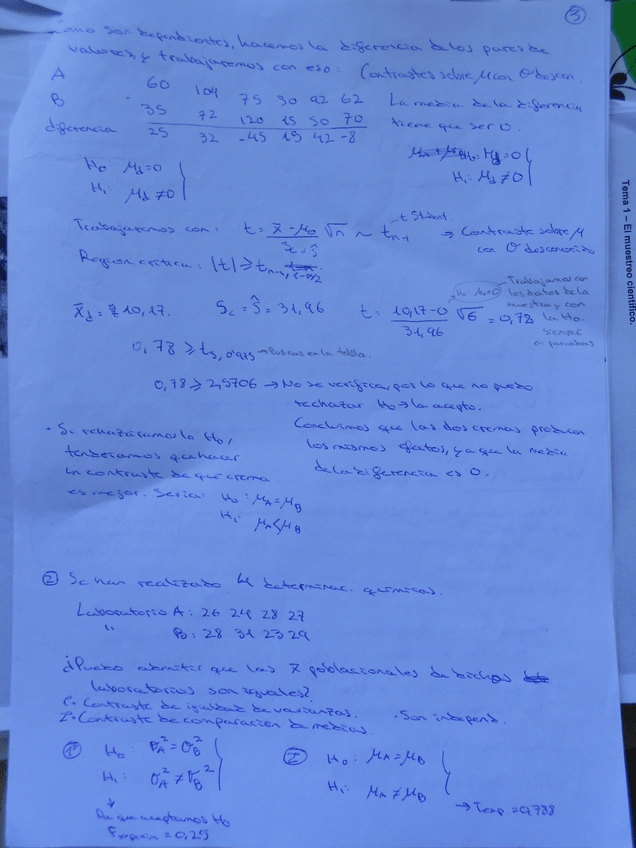 ③
como son dependientes, hacemos la diferencia de los pares de
valores, y trabajaremos con eso: Contrastes sobre μ con σ descon.
A 60 104 75 30 92 62
B 35 72 120 15 50 70
diferencia 25 32 -45 15 42 -8
La media de la diferencia
tiene que ser 0.
H₀ μd=0
H₁: μd≠0
H₀: μd=0
H₁: μd≠0
Trabajaremos con: t = x̄-μ₀ / ŝ √n ~ tn-1 t Student → Contraste sobre μ
con σ desconocido
Región crítica: |t| ≥ tn-1, 1-α/2
x̄d = 10,17. Sc = ŝ = 31,96 t = 10,17-0 / 31,96 √6 = 0,78
H₀: μd=0
Trabajamos con
los datos de la
muestra y con
la H₀.
siempre
0,78 ≥ t5, 0'975 → Buscas en la tabla.
0,78 ≥ 2,5706 → No se verifica, por lo que no puedo
rechazar H₀ → la acepto.
Concluimos que las dos cremas producen
los mismos efectos, ya que la media
de la diferencia es 0.
· Si rechazáramos la H₀,
tendríamos que hacer
un contraste de qué crema
es mejor. Sería: H₀: μA=μB
H₁: μA<μB
② Se han realizado 4 determinac. químicas.
Laboratorio A: 26 24 28 27
" B: 28 31 23 29
¿Puedo admitir que las x̄ poblacionales de dichos
laboratorios son iguales?
1º Contraste de igualdad de varianzas. · Son independ.
2º Contraste de comparación de medias.
1º H₀: σA²=σB²
H₁: σA²≠σB²
↓
Da que aceptamos H₀
Fexperim = 0,25
2º H₀: μA=μB
H₁: μA≠μB
→ Texp. = 0,788
Tema 1 – El muestreo científico.